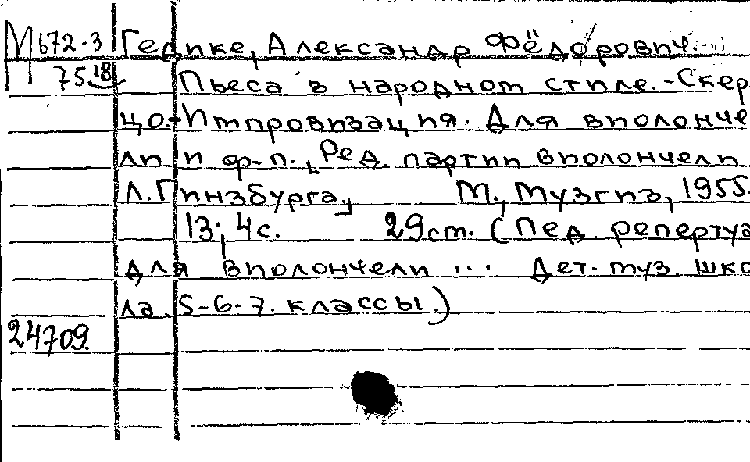 М 672-3 Гедике, Александр Фёдорович.
75 18 Пьеса в народном стиле.-Скер
цо.-Импровизация. Для виолонче
ли и ф-п., Ред. партии виолончели
Л. Гинзбурга, М., Музгиз, 1955
13; 4с. 29см. (Пед. репертуа
для виолончели ... Дет. муз. шко
ла. 5-6-7. классы.)
24709